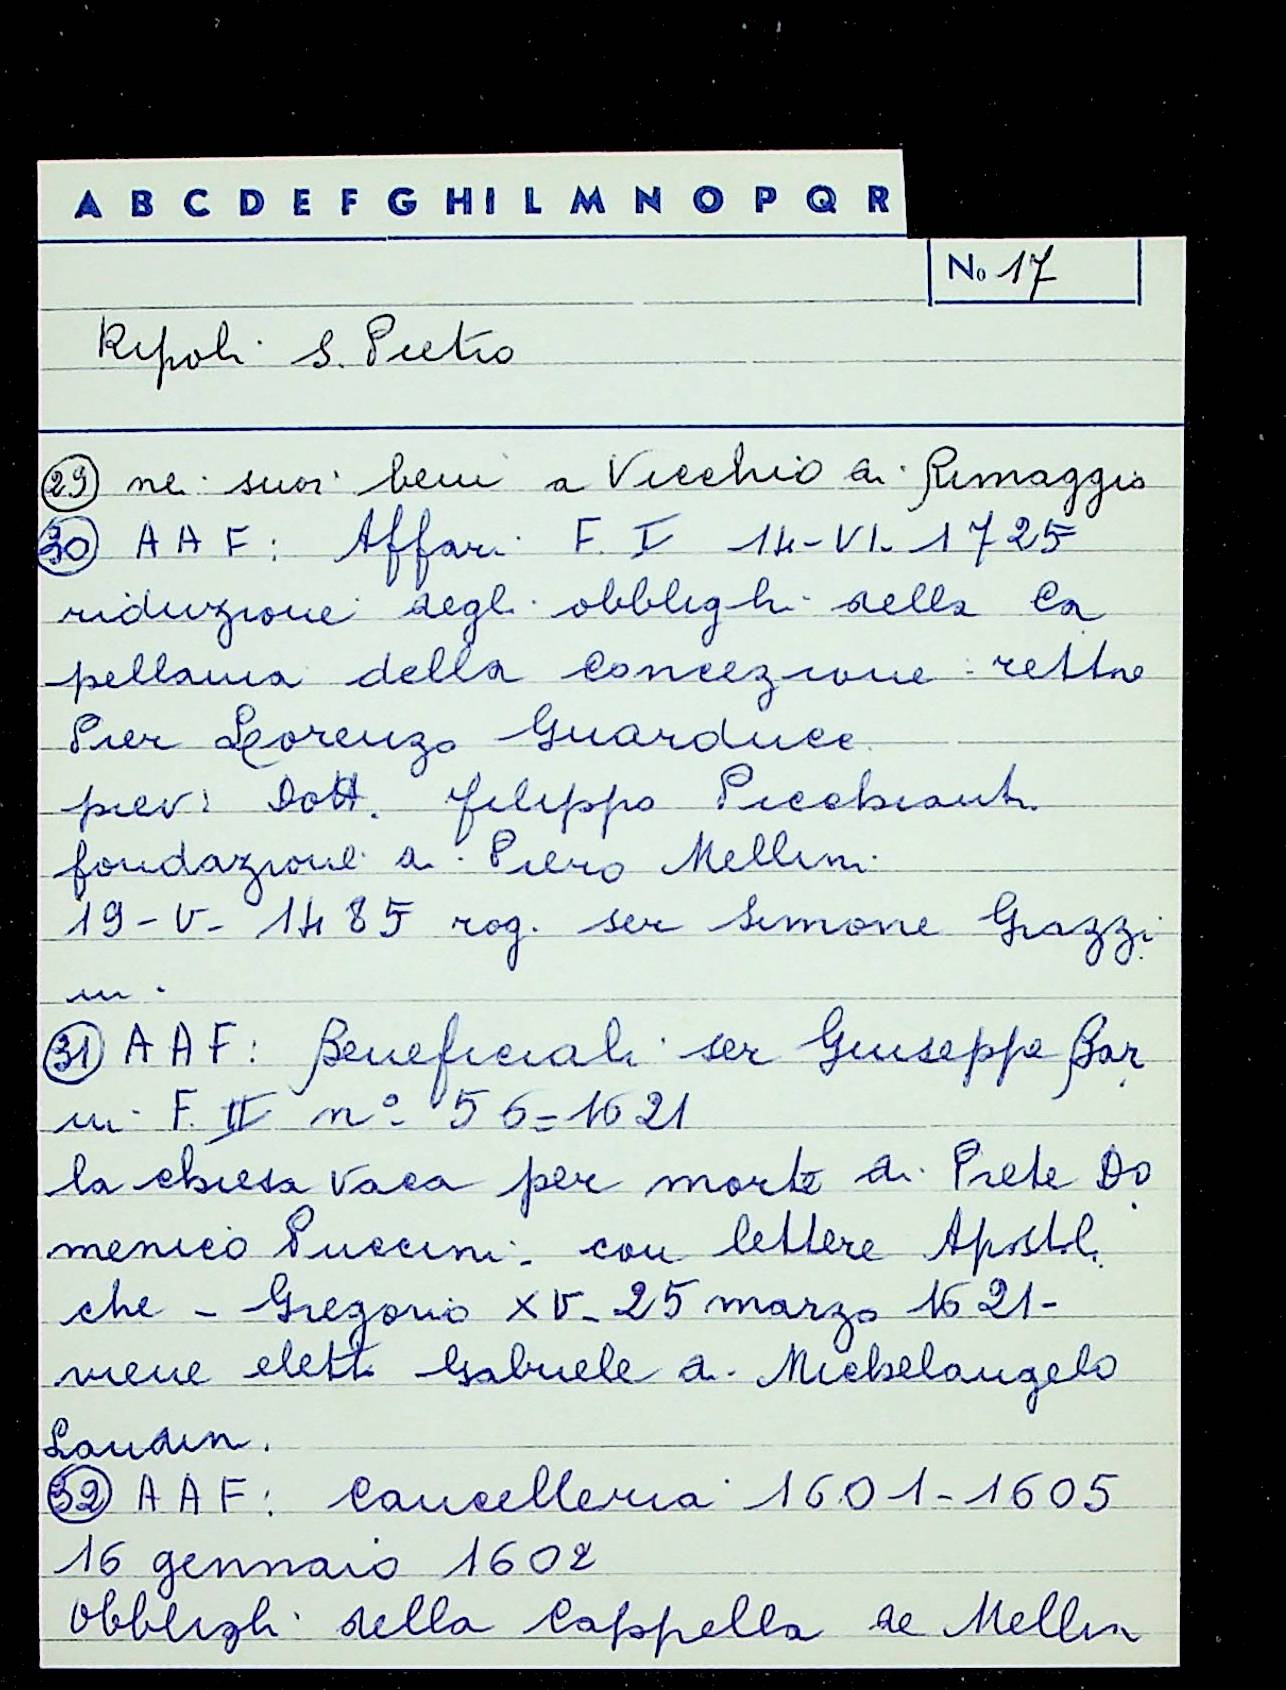 A B C D E F G H I L M N O P Q R
No 17
Ripoli S. Pietro
29 nei suoi beni a Vicchio di Rimaggio
30 A A F: Affari F. I 14-VI-1725
riduzione degli obblighi della Ca
pellania della Concezione: rettore
Pier Lorenzo Guarducci
piev: Dott. Filippo Picchianti
fondazione di Piero Mellini
19-V-1485 rog. ser Simone Grazzi
ni.
31 A A F: Beneficiali ser Giuseppe Bar
ni F. II n° 56=1621
la chiesa vaca per morte di Prete Do
menico Puccini- con lettere Apostoli
che - Gregorio XV- 25 marzo 1621-
viene eletto Gabriele di Michelangelo
Landini.
32 A A F: Cancelleria 1601-1605
16 gennaio 1602
Obblighi della Cappella de Mellini